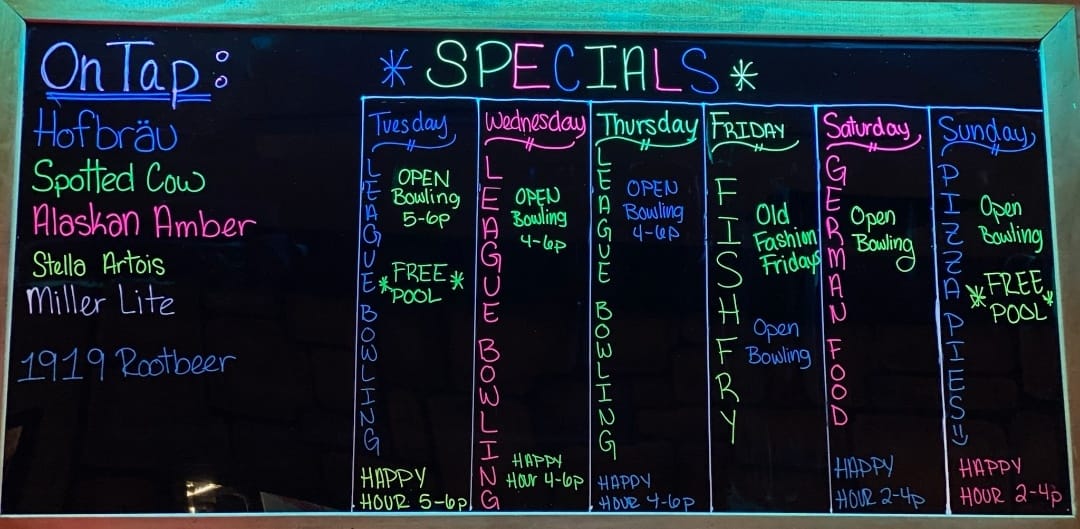 On Tap:
Hofbräu
Spotted Cow
Alaskan Amber
Stella Artois
Miller Lite
1919 Rootbeer
* SPECIALS *
Tuesday
LEAGUE BOWLING
OPEN
Bowling
5-6p
*FREE*
POOL
HAPPY
HOUR 5-6p
Wednesday
LEAGUE BOWLING
OPEN
Bowling
4-6p
HAPPY
HOUR 4-6p
Thursday
LEAGUE BOWLING
OPEN
Bowling
4-6p
HAPPY
HOUR 4-6p
FRIDAY
FISH FRY
Old
Fashion
Fridays
Open
Bowling
Saturday
GERMAN FOOD
Open
Bowling
HAPPY
HOUR 2-4p
Sunday
PIZZA PIES :)
Open
Bowling
*FREE*
POOL
HAPPY
HOUR 2-4p